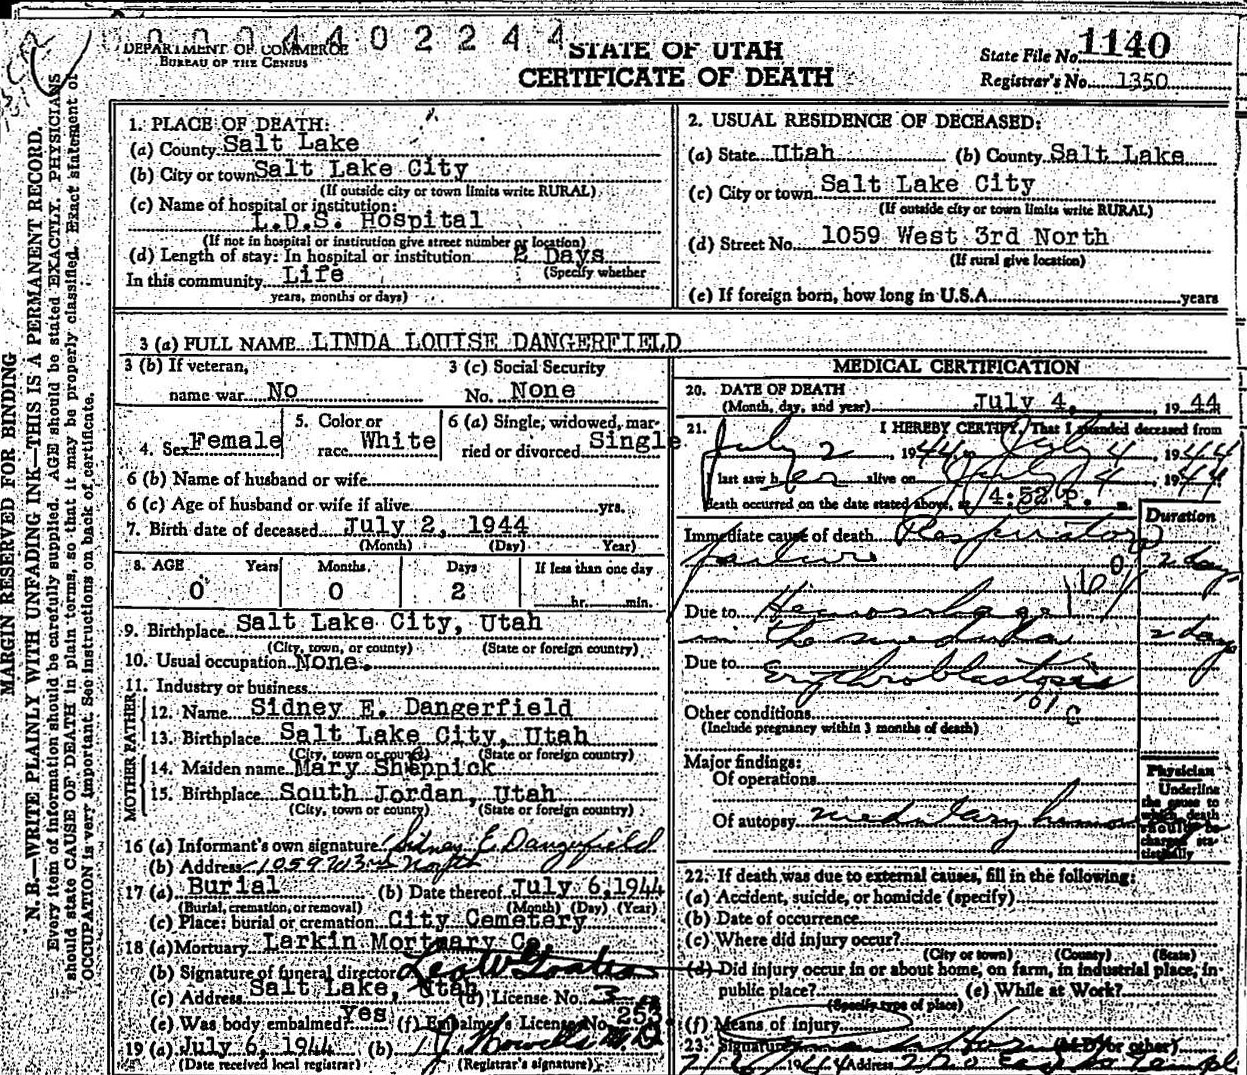 0004402244
DEPARTMENT OF COMMERCE
BUREAU OF THE CENSUS
STATE OF UTAH
CERTIFICATE OF DEATH
State File No. 1140
Registrar's No. 1350
MARGIN RESERVED FOR BINDING
N. B.—WRITE PLAINLY WITH UNFADING INK—THIS IS A PERMANENT RECORD.
Every item of information should be carefully supplied. AGE should be stated EXACTLY. PHYSICIANS
should state CAUSE OF DEATH in plain terms, so that it may be properly classified. Exact statement of
OCCUPATION is very important. See instructions on back of certificate.
1. PLACE OF DEATH:
(a) County Salt Lake
(b) City or town Salt Lake City
(If outside city or town limits write RURAL)
(c) Name of hospital or institution:
L.D.S. Hospital
(If not in hospital or institution give street number or location)
(d) Length of stay: In hospital or institution 2 Days
(Specify whether
In this community Life
years, months or days)
2. USUAL RESIDENCE OF DECEASED:
(a) State Utah (b) County Salt Lake
(c) City or town Salt Lake City
(If outside city or town limits write RURAL)
(d) Street No. 1059 West 3rd North
(If rural give location)
(e) If foreign born, how long in U.S.A. years
3 (a) FULL NAME LINDA LOUISE DANGERFIELD
3 (b) If veteran,
name war No
3 (c) Social Security
No. None
4. Sex Female
5. Color or
race White
6 (a) Single, widowed, mar-
ried or divorced Single
6 (b) Name of husband or wife
6 (c) Age of husband or wife if alive yrs.
7. Birth date of deceased July 2, 1944
(Month) (Day) Year)
8. AGE Years Months Days If less than one day
0 0 2 hr. min.
9. Birthplace Salt Lake City, Utah
(City, town, or county) (State or foreign country)
10. Usual occupation None.
11. Industry or business
FATHER
12. Name Sidney E. Dangerfield
13. Birthplace Salt Lake City, Utah
(City, town or county) (State or foreign country)
MOTHER
14. Maiden name Mary Sheppick
15. Birthplace South Jordan, Utah
(City, town or county) (State or foreign country)
16 (a) Informant's own signature Sidney E. Dangerfield
(b) Address 1059 W 3rd North
17 (a) Burial (b) Date thereof July 6, 1944
(Burial, cremation, or removal) (Month) (Day) (Year)
(c) Place: burial or cremation City Cemetery
18 (a) Mortuary Larkin Mortuary Co.
(b) Signature of funeral director
(c) Address Salt Lake, Utah (d) License No. 3
(e) Was body embalmed? Yes (f) Embalmer's License No. 253
19 (a) July 6, 1944 (b) M.D.
(Date received local registrar) (Registrar's signature)
MEDICAL CERTIFICATION
20. DATE OF DEATH
(Month, day, and year) July 4, 1944
21. I HEREBY CERTIFY, That I attended deceased from
July 2, 1944, to July 4, 1944
I last saw her alive on July 4, 1944
death occurred on the date stated above, at 4:52 P. m.
Duration
Immediate cause of death Respiratory
failure 2 day
Due to Hemorrhage
in the medulla 2 day
Due to Erythroblastosis
161 c
Other conditions
(Include pregnancy within 3 months of death)
Major findings:
Of operations
Of autopsy medullary
Physician
Underline
the cause to
which death
should be
charged sta-
tistically
22. If death was due to external causes, fill in the following:
(a) Accident, suicide, or homicide (specify)
(b) Date of occurrence
(c) Where did injury occur?
(City or town) (County) (State)
(d) Did injury occur in or about home, on farm, in industrial place, in
public place? (e) While at Work?
(Specify type of place)
(f) Means of injury
23. Signature (M.D. or other)
7/6 1944 Address